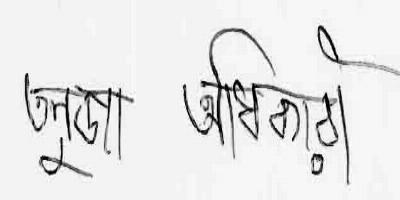 তনুজা অধিকারী